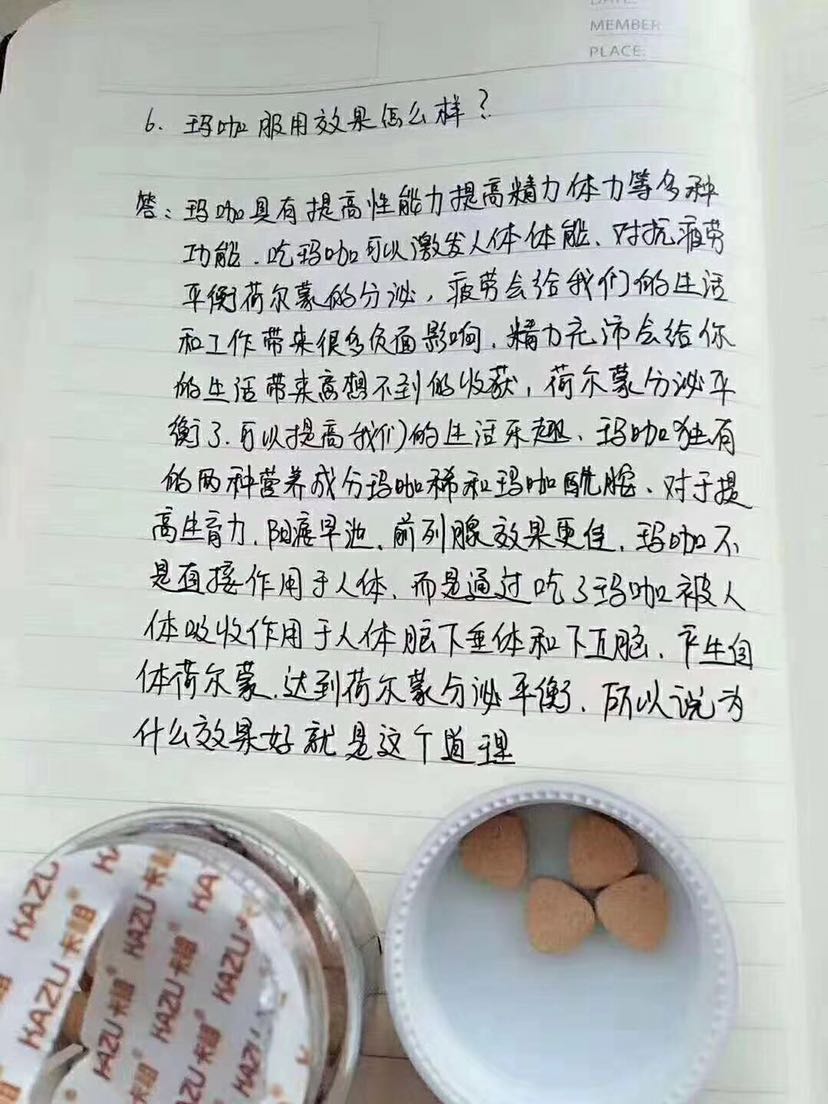 DATE:
MEMBER
PLACE:
6. 玛咖服用效果怎么样?
答:玛咖具有提高性能力提高精力体力等多种
功能.吃玛咖可以激发人体体能、对抗疲劳
平衡荷尔蒙的分泌,疲劳会给我们的生活
和工作带来很多负面影响.精力充沛会给你
的生活带来意想不到的收获,荷尔蒙分泌平
衡了.可以提高我们的生活乐趣、玛咖独有
的两种营养成分玛咖稀和玛咖酰胺、对于提
高生育力.阳痿早泄.前列腺效果更佳.玛咖不
是直接作用于人体.而是通过吃了玛咖被人
体吸收作用于人体脑下垂体和下丘脑.产生自
体荷尔蒙.达到荷尔蒙分泌平衡、所以说为
什么效果好就是这个道理
KAZU卡祖
KAZU卡祖
KAZU卡祖
KAZU卡祖